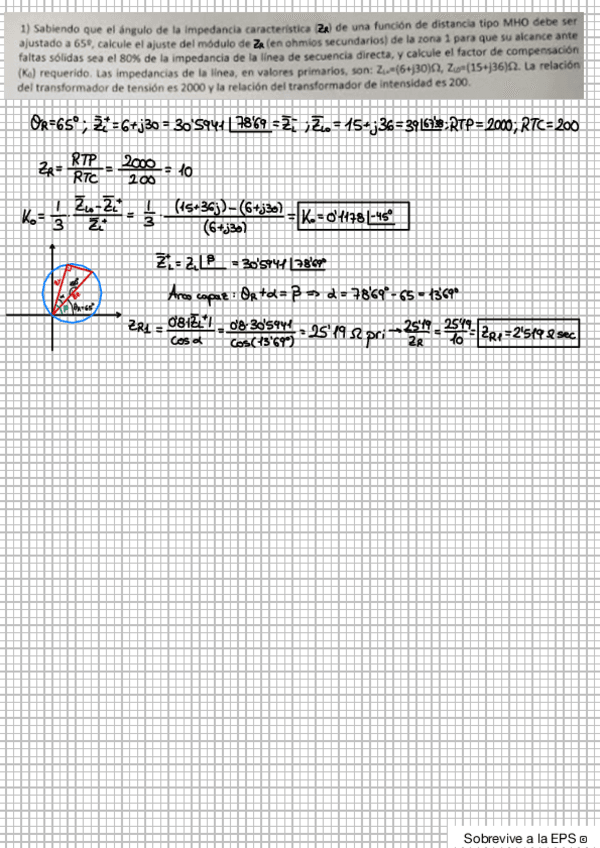 1) Sabiendo que el ángulo de la impedancia característica (ZR) de una función de distancia tipo MHO debe ser
ajustado a 65º, calcule el ajuste del módulo de ZR (en ohmios secundarios) de la zona 1 para que su alcance ante
faltas sólidas sea el 80% de la impedancia de la línea de secuencia directa, y calcule el factor de compensación
(K₀) requerido. Las impedancias de la línea, en valores primarios, son: ZL+=(6+j30)Ω, ZL0=(15+j36)Ω. La relación
del transformador de tensión es 2000 y la relación del transformador de intensidad es 200.
θR=65°; Z̄L⁺=6+j30=30'5941∠78'69=Z̄L⁻; Z̄L0=15+j36=39∠67'38; RTP=2000; RTC=200
ZR = RTP/RTC = 2000/200 = 10
K₀ = 1/3 · (Z̄L0-Z̄L⁺)/Z̄L⁺ = 1/3 · ((15+36j)-(6+j30))/(6+j30) = K₀=0'1178∠-45°
Z̄L⁺ = ZL∠β = 30'5941∠78'69°
θR=65°
Arco capaz: θR+α=β ⇒ α=78'69°-65=13'69°
ZR1 = 0'8|Z̄L⁺|/cos α = 0'8·30'5941/cos(13'69°) = 25'19 Ω pri → 25'19/ZR = 25'19/10 = ZR1=2'519 Ω sec
Sobrevive a la EPS